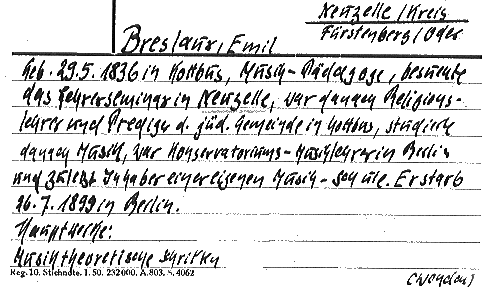 Neuzelle/Kreis
Fürstenberg/Oder
Breslaur, Emil
Geb. 29.5.1836 in Kottbus, Musik-Pädagoge, besuchte
das Lehrerseminar in Neuzelle, war danach Religions-
lehrer und Prediger d. jüd. Gemeinde in Cottbus, studierte
danach Musik, war Konservatoriums-Musiklehrer in Berlin
und zuletzt Inhaber einer eigenen Musik-Schule. Er starb
26.7.1899 in Berlin.
Hauptwerke:
Musiktheoretische Schriften
Reg. 10. Stiehndte. I. 50. 232000. A. 803. 8. 4062